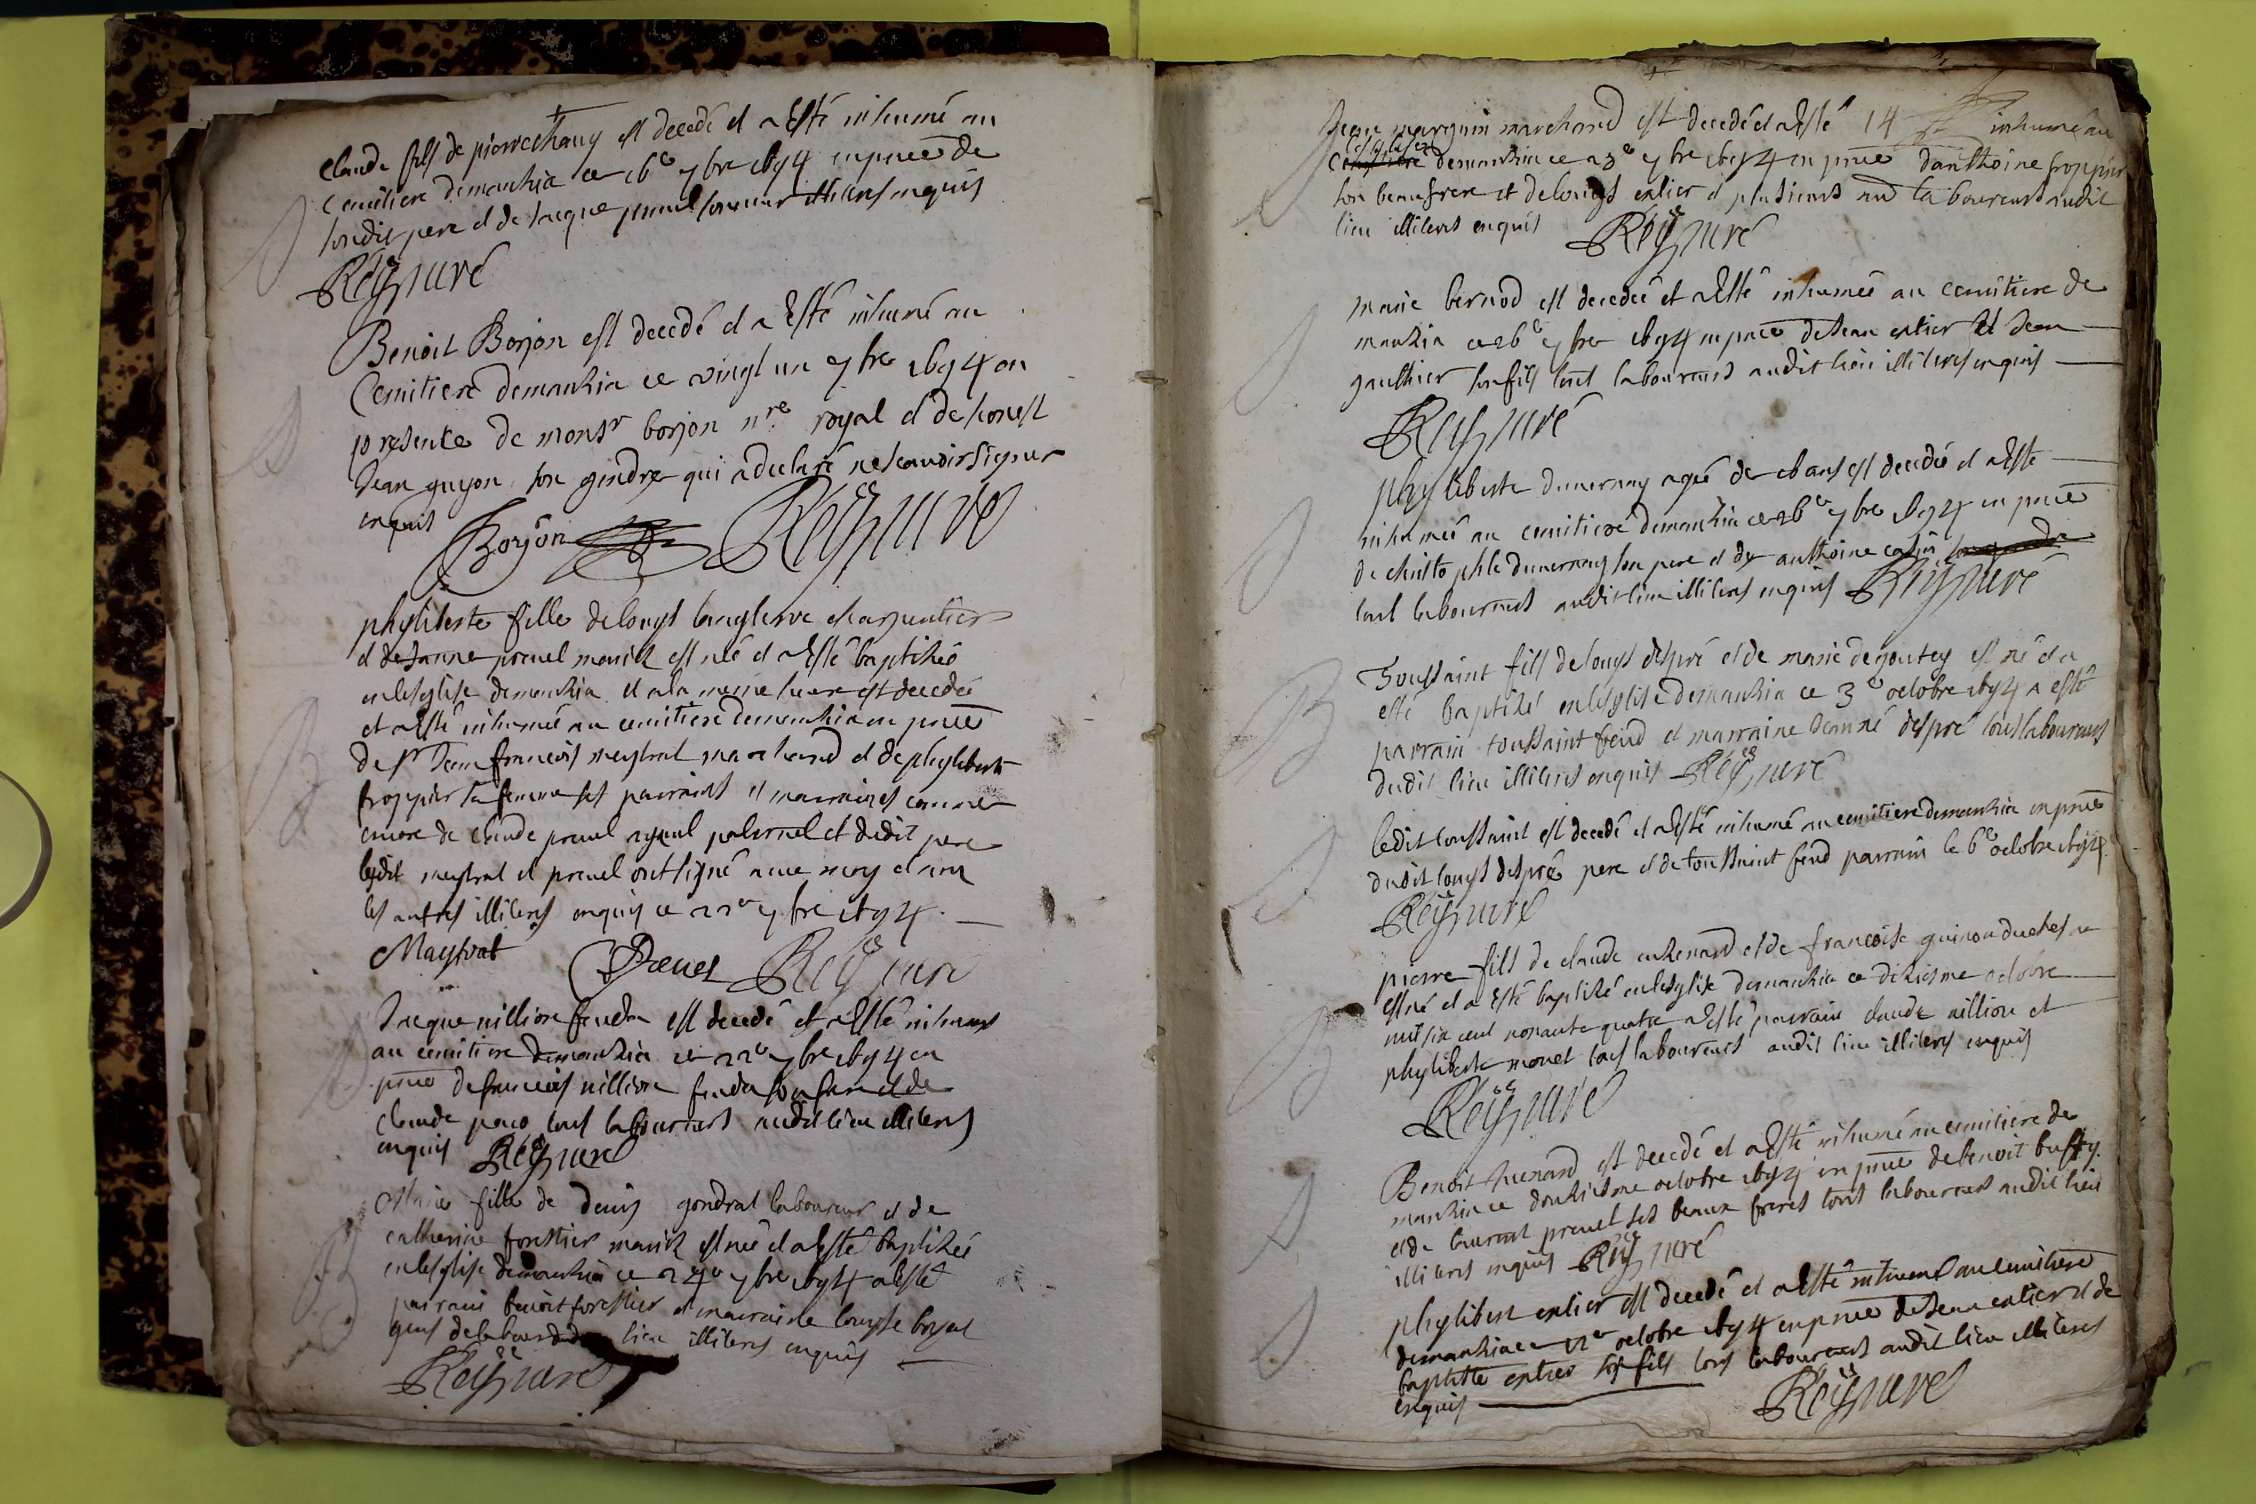 Claude fils de pierre chany est decedé et a Esté inhumé au
Cemitiere demanzia ce 16e 7bre 1694 en pnce de
sondit pere et de Jacque preuel illiteres enquis
Reÿ curé
Benoit Borjon est decedé et a Esté inhumé au
Cemitiere demanzia ce vingt un 7bre 1694 en
presence de monsr borjon nre royal et de honest
Jean guyon son gendre qui a declaré ne scauoir signer
enquis Borjon Reÿ curé
phyliberte fille de louys charpentier
et de Janne preuel mariez est née et a Esté baptizée
en lesglise demanzia et a la mesme heure est decedée
et a Esté inhumée au cemitiere demanzia en pnce
de sr Jean francois maystrat marchand et de phyliberte
froppier sa femme ses parrains et marraines comme
encore de claude preuel ayeul paternel et dudit pere
ledit maystrat et preuel ont signé auec moy et non
les autres illiteres enquis ce 22e 7bre 1694.
Maystrat Preuel Reÿ curé
Jacque nillion feuda est decedé et a Esté inhumé
au cemitiere demanzia ce 22e 7bre 1694 en
pnce de francois nillion feuda son frere et de
claude tous laboureurs audit lieu illiteres
enquis Reÿ curé
Marie fille de denis gondrat laboureur et de
catherine forestier mariez est née et a esté baptizée
en lesglise demanzia ce 24e 7bre 1694 a esté
parrain benoit forestier et marraine louyse boyat
gens de labeur dudit lieu illiteres enquis
Reÿ curé
14
Jean marguin marchand est decedé et a Esté inhumé au
Cemitiere demanzia ce 23e 7bre 1694 en pnce danthoine froppier
son beaufrere et de louys entier et plusieurs laboureurs audit
lieu illiteres enquis Reÿ curé
Marie bernod est decedée et a Esté inhumée au cemitiere de
manzia ce 26e 7bre 1694 en pnce de Jean entier et Jean
gauthier son fils tous laboureurs audit lieu illiteres enquis
Reÿ curé
phyliberte duuernay agée de ans est decedée et a Esté
inhumée au cemitiere demanzia ce 26e 7bre 1694 en pnce
de christophle duuernay son pere et de anthoine
tous laboureurs audit lieu illiteres enquis Reÿ curé
Toussaint fils de louys despré et de marie degoutey est né et a
esté baptizé en lesglise demanzia ce 3e octobre 1694 a esté
parrain toussaint feud et marraine Jeanne despré tous laboureurs
dudit lieu illiteres enquis Reÿ curé
ledit toussaint est decedé et a Esté inhumé au cemitiere demanzia en pnce
dudit louys despré pere et de toussaint feud parrain le 6e octobre 1694.
Reÿ curé
pierre fils de claude et de francoise
est né et a Esté baptizé en lesglise demanzia ce dixiesme octobre
mil six cent nonante quatre a Esté parrain claude nillion et
phyliberte monet tous laboureurs audit lieu illiteres enquis
Reÿ curé
Benoit est decedé et a Esté inhumé au cemitiere de
manzia ce douziesme octobre 1694 en pnce de benoit buffy
et de laurent preuel ses beaux freres tous laboureurs audit lieu
illiteres enquis Reÿ curé
phylibert entier est decedé et a Esté inhumé au cemitiere
demanzia ce 12e octobre 1694 en pnce de Jean entier et de
baptiste entier ses fils tous laboureurs audit lieu illiteres
enquis Reÿ curé